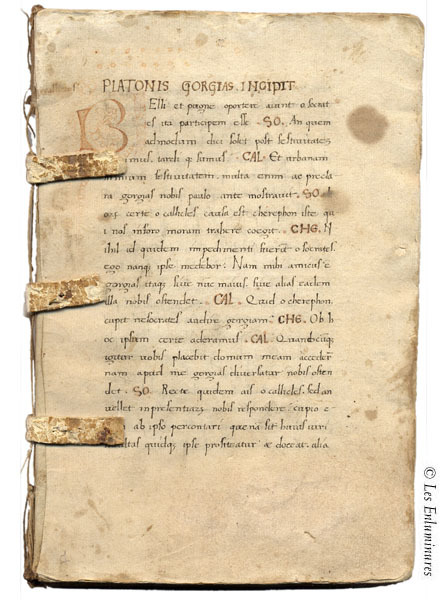 PLATONIS GORGIAS INCIPIT
B Elli et pugne oportere aiunt o socrat
es ita participem esse. SO. An quem
admodum dici solet post festivitates
imus, tardi que sumus. CAL. Et urbanam
festivitatem. multa enim ac precla
ra gorgias nobis paulo ante mostravit. SO.
certe o callicles causa est cherephon iste qu
i nos in foro moram trahere coegit. CHE. N
ihil id quidem impedimenti fuerit o socrates.
ego nanque ipse medebor. Nam mihi amicus e
gorgias itaque sive nunc mavis. sive alias eadem
illa nobis ostendet. CAL. Quid o cherephon.
cupit ne socrates audire gorgiam. CHE. Ob h
oc ipsum certe aderamus. CAL. Quandocunque
igitur vobis placebit domum meam acceder
nam apud me gorgias diversatur nobis osten
det. SO. Recte quidem ais o callicles. sed an
vellet inpresentiarum nobis respondere. cupio e
ab ipso percontari que nam sit huius viri
facultas quidque ipse profiteatur ac doceat. alia
© Les Enluminures